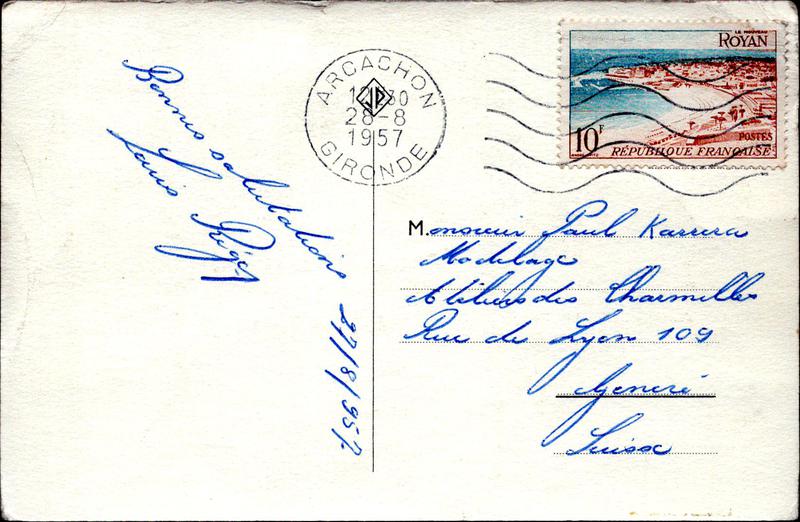 Bonnes salutations
Louis
27/8/1957
ARCACHON
12 30
28-8
1957
GIRONDE
LE NOUVEAU
ROYAN
10F
POSTES
RÉPUBLIQUE FRANÇAISE
Monsieur Paul Karrera
Modelage
Ateliers des Charmilles
Rue de Lyon 109
Genève
Suisse